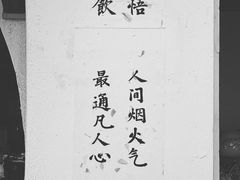 悟
飲
人间烟火气
最通凡人心